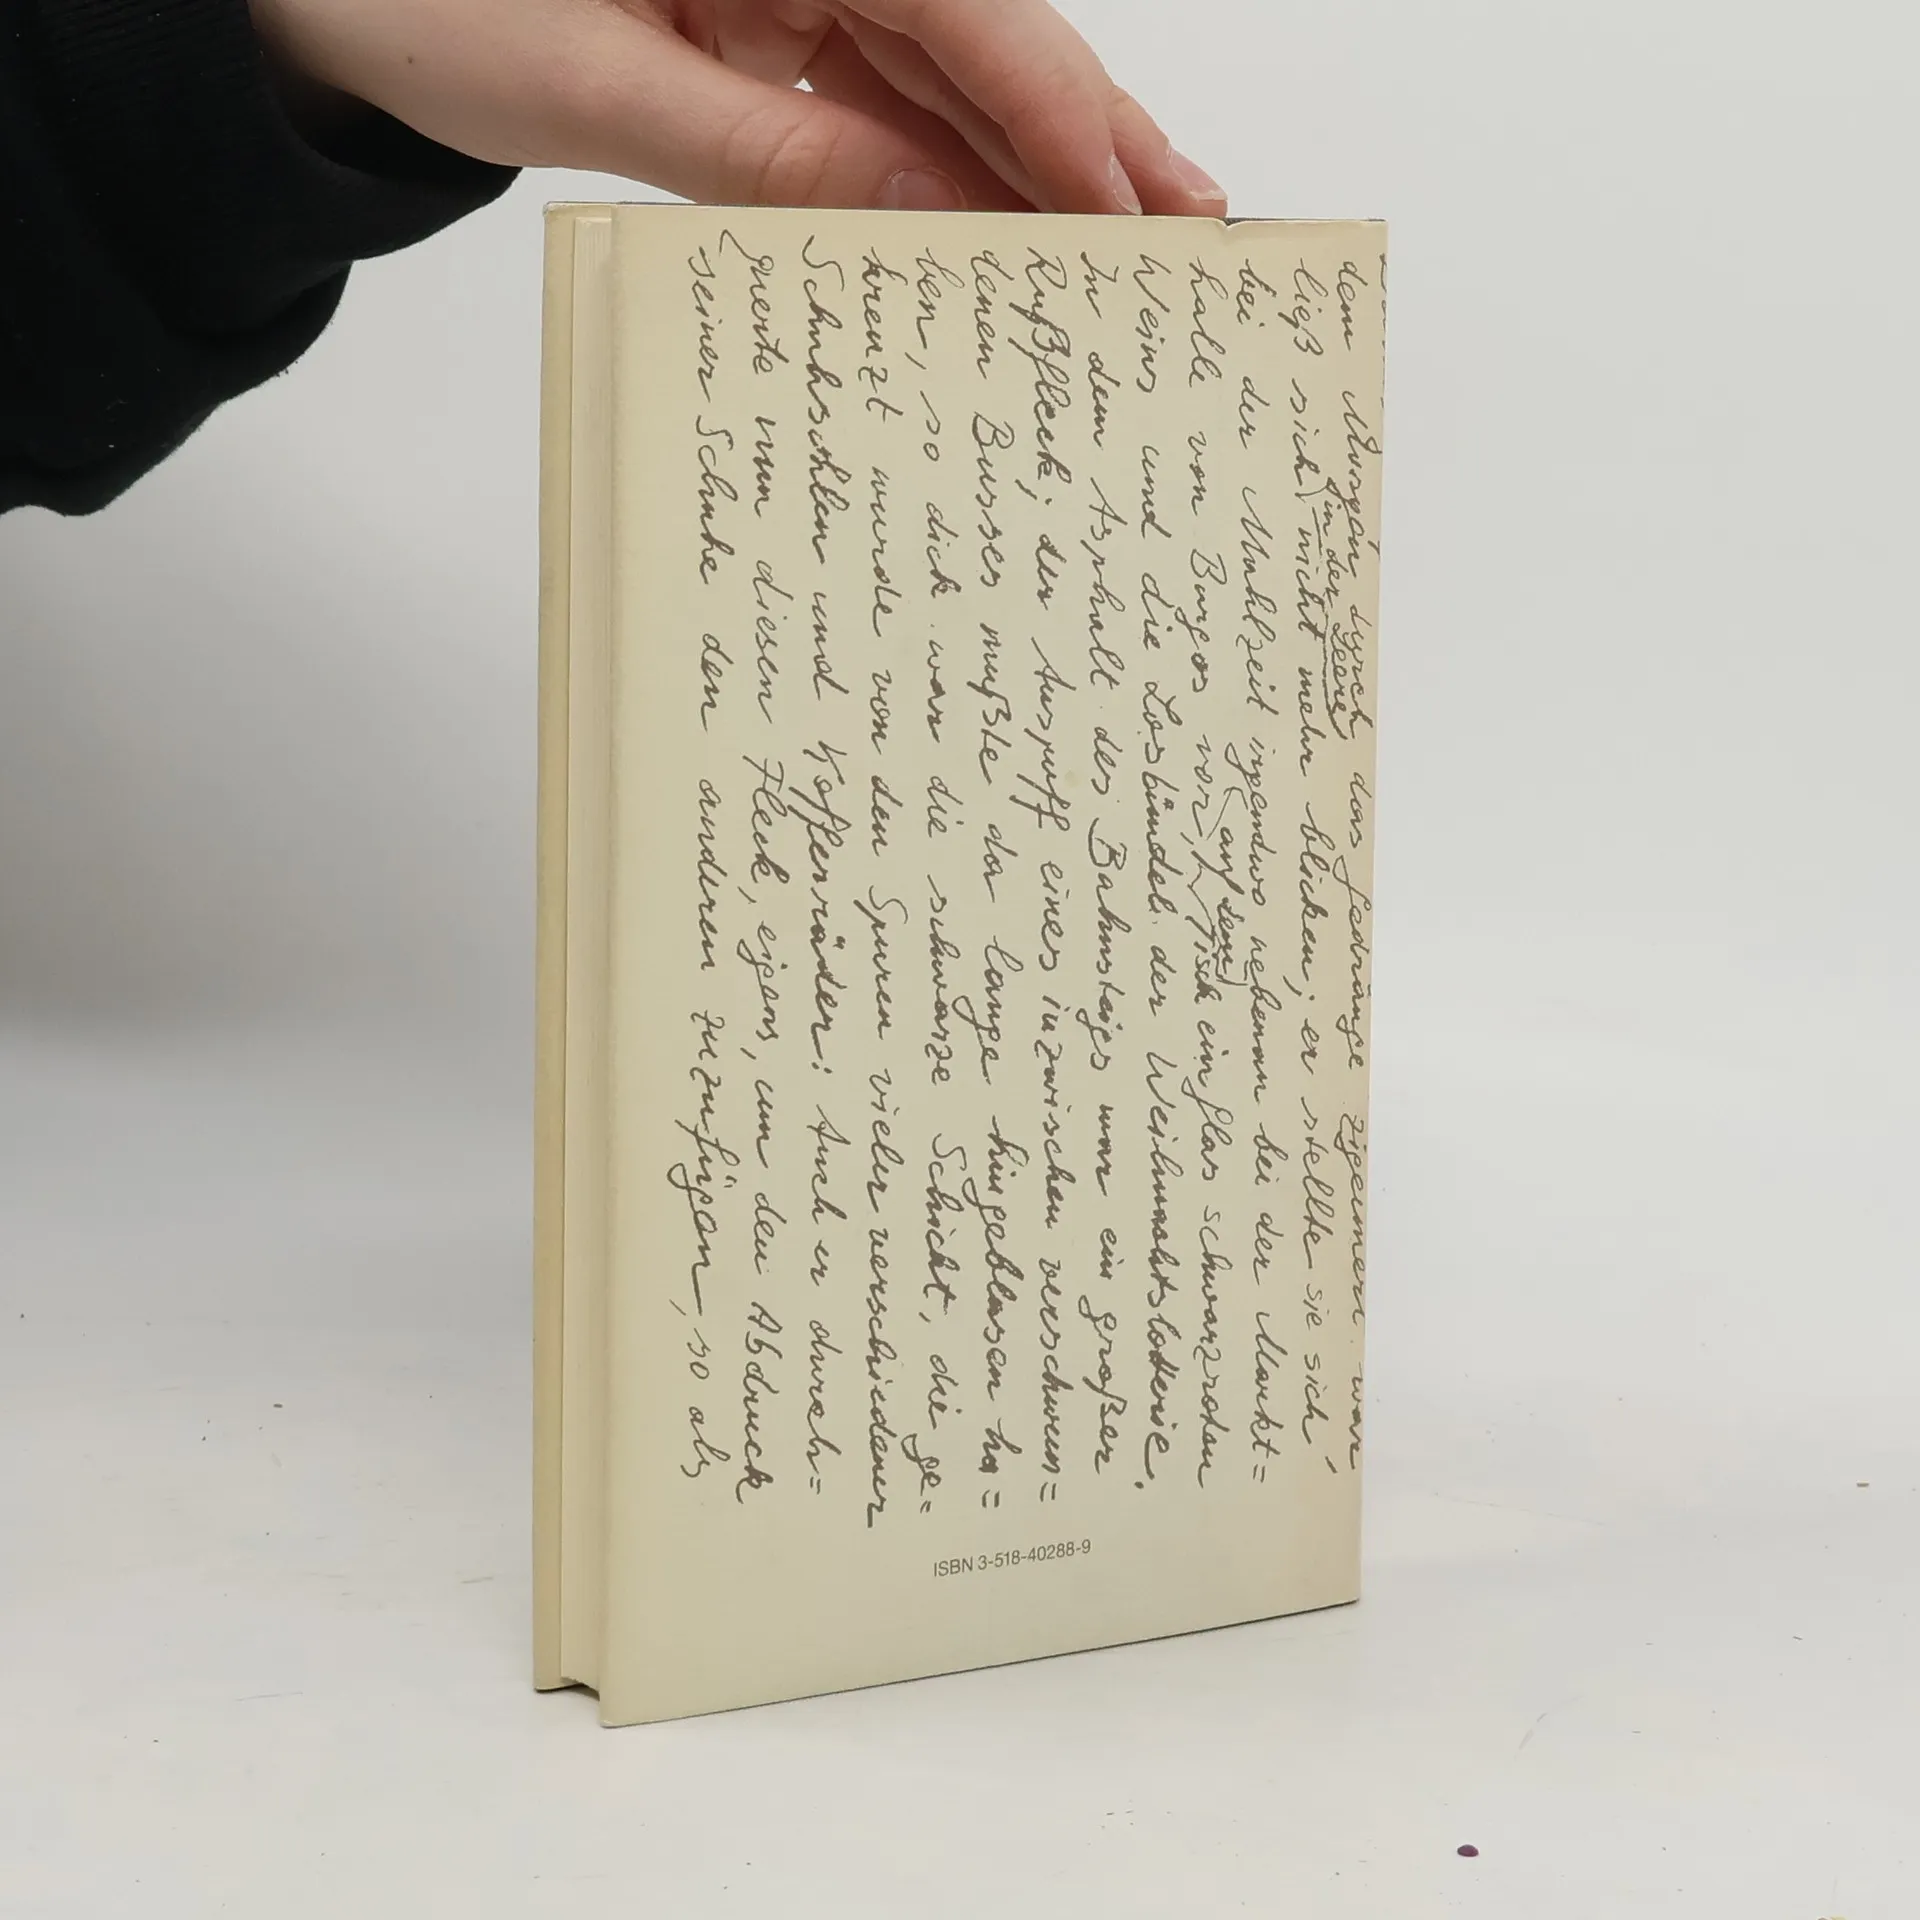 dem Ausgang durch das Gedränge zigeunert war,
(in der Leere)
ließ sich nicht mehr blicken; er stellte sie sich
bei der Mahlzeit irgendwo nebenan bei der Markt=
(auf dem)
halle von Burgos vor, Tisch ein Glas schwarzroten
Weins und die Losbündel der Weihnachtslotterie.
In dem Asphalt des Bahnsteigs war ein großer
Rußfleck; der Auspuff eines inzwischen verschwun=
denen Busses mußte da lange hingeblasen ha=
ben, so dick war die schwarze Schicht, die ge=
kreuzt wurde von den Spuren vieler verschiedener
Schuhsohlen und Kofferräder: Auch er durch=
querte nun diesen Fleck, eigens, um den Abdruck
seiner Schuhe den anderen zuzufügen, so als
ISBN 3-518-40288-9